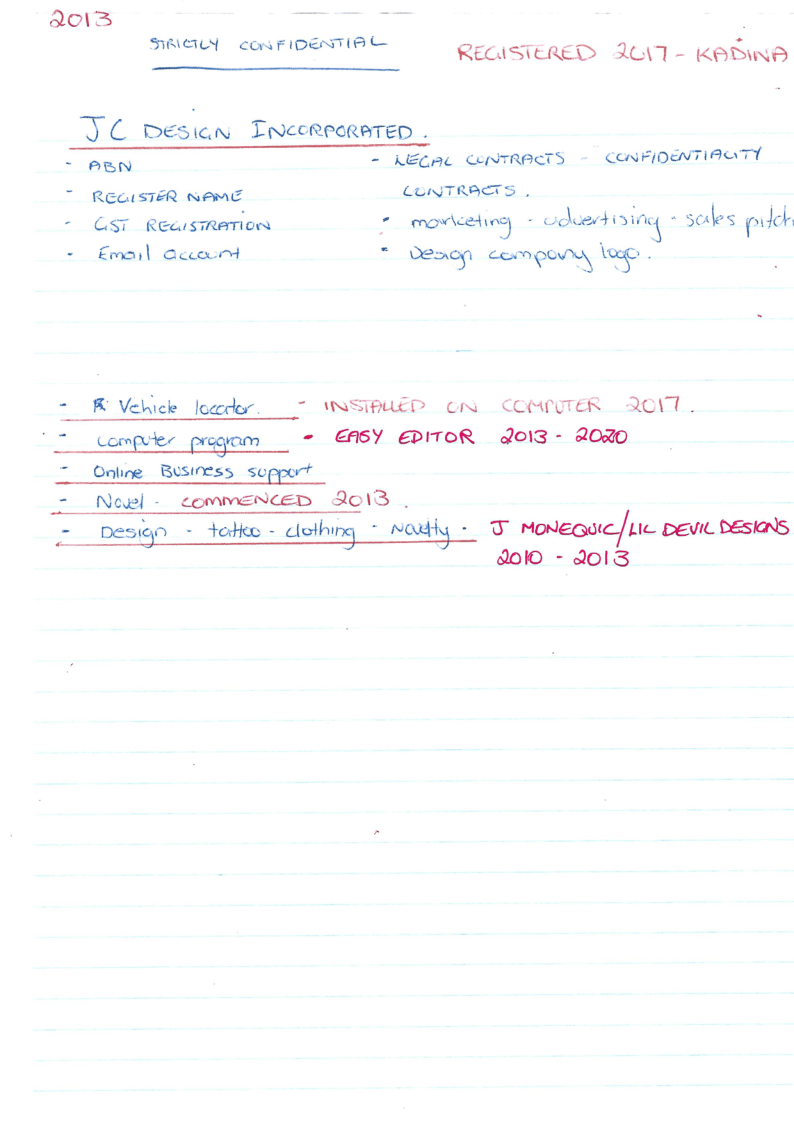 2013
STRICTLY CONFIDENTIAL
REGISTERED 2017 - KADINA
JC DESIGN INCORPORATED.
- ABN
- REGISTER NAME
- GST REGISTRATION
- Email account
- LEGAL CONTRACTS - CONFIDENTIALITY
CONTRACTS.
- marketing - advertising - sales pitch
- Design company logo.
- Vehicle locator. - INSTALLED ON COMPUTER 2017.
- computer program - EASY EDITOR 2013 - 2020
- Online Business support
- Novel - COMMENCED 2013.
- Design - tattoo - clothing - Novelty - J MONEQUIC/LIL DEVIL DESIGNS
2010 - 2013